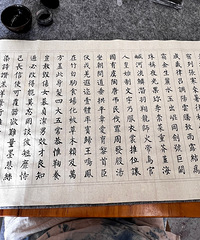 列張寒來暑
成歲律呂調陽雲騰致雨露結為
霜金生麗水玉出崑岡劍號巨闕
珠稱夜光果珍李柰菜重芥薑海
鹹河淡鱗潛羽翔龍師火帝鳥官
人皇始制文字乃服衣裳推位讓
國有虞陶唐弔民伐罪周發殷湯
坐朝問道垂拱平章愛育黎首臣
伏戎羌遐邇壹體率賓歸王鳴鳳
在竹白駒食場化被草木賴及萬
方蓋此身髮四大五常恭惟鞠養
豈敢毀傷女慕貞潔男效才良知
過必改得能莫忘罔談彼短靡恃
己長信使可覆器欲難量墨悲絲
染詩讚羔羊